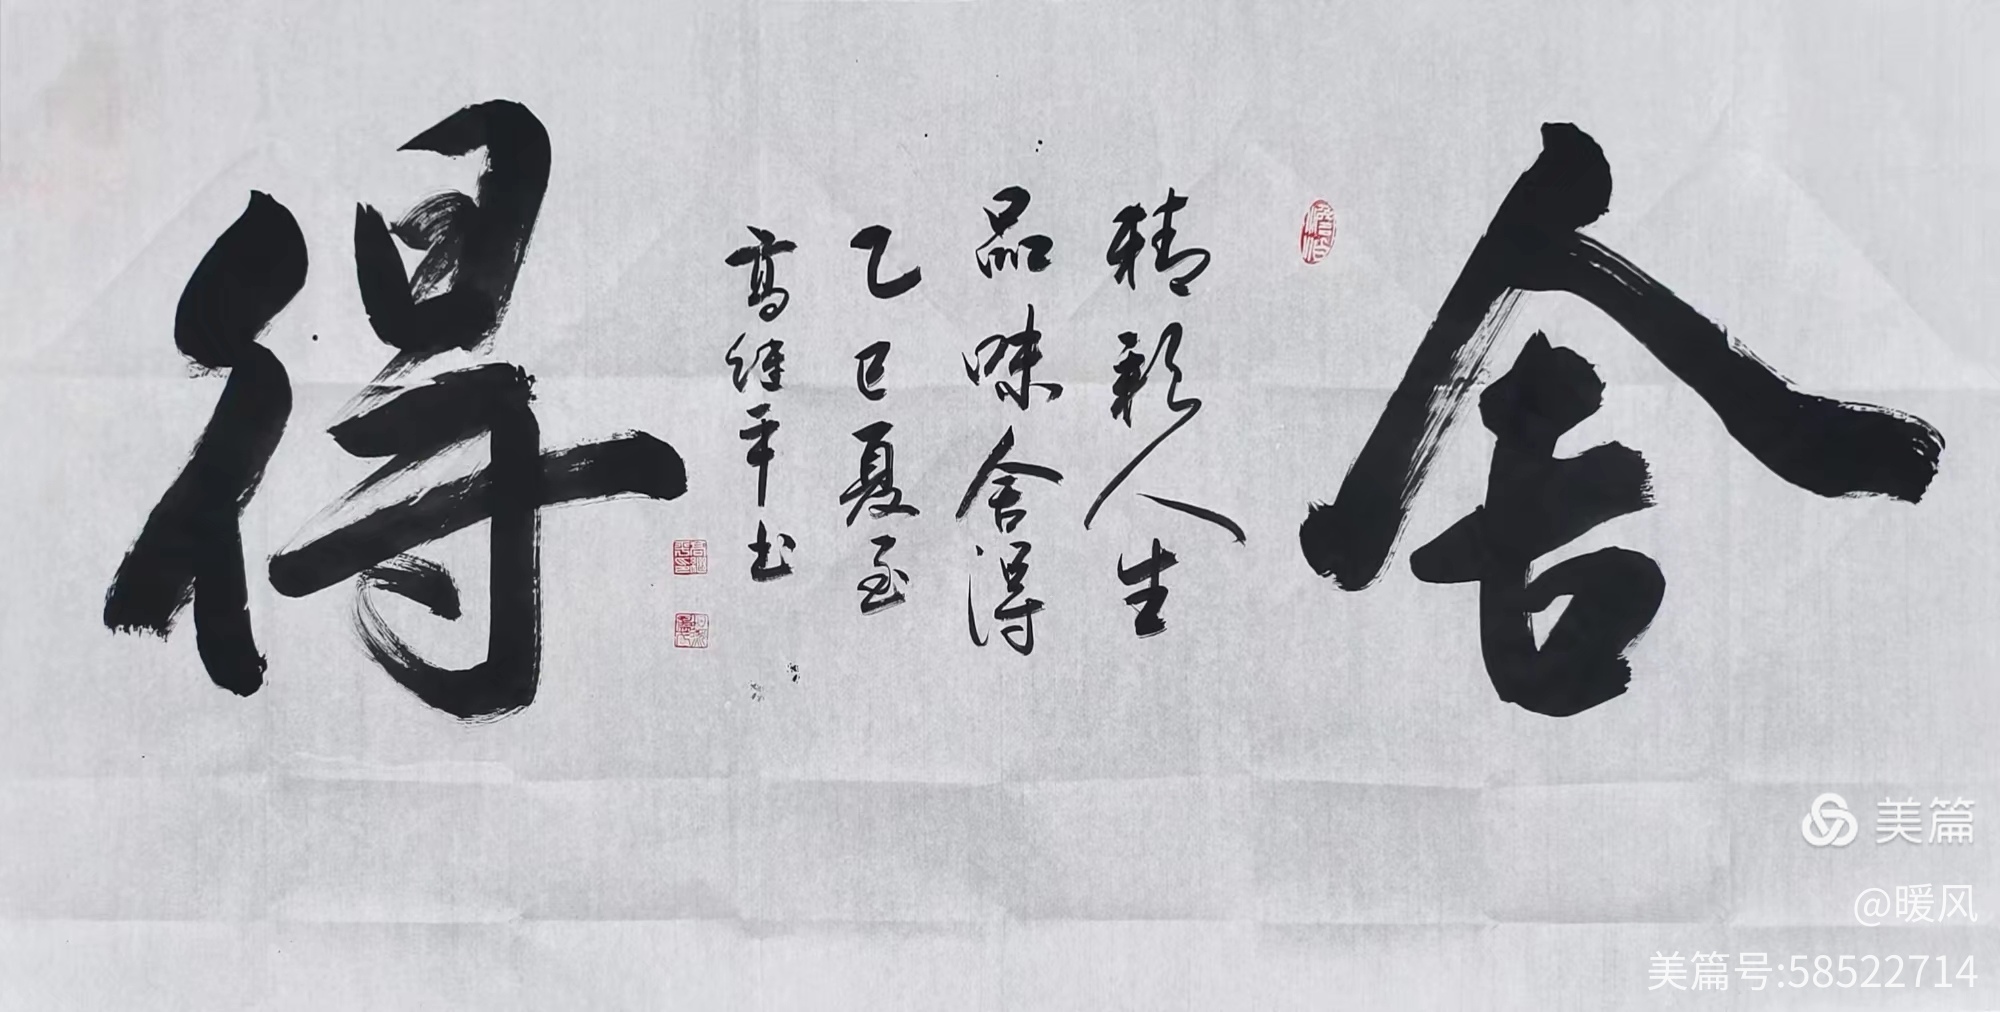 舍得
精彩人生
品味舍得
乙巳夏至
高继平书
美篇
@暖风
美篇号:58522714